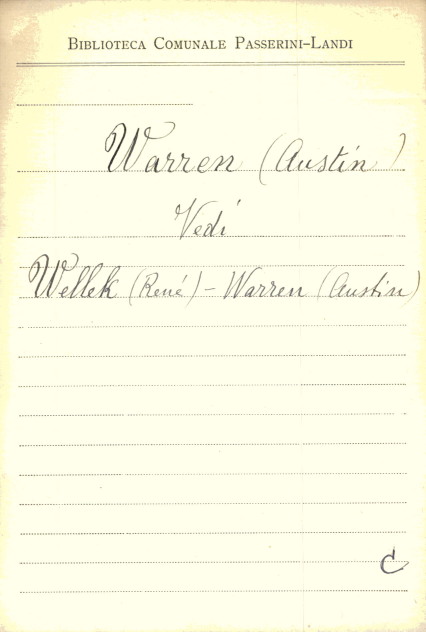 Biblioteca Comunale Passerini–Landi
Warren (Austin)
Vedi
Wellek (René) – Warren (Austin)
C